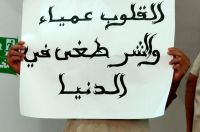 القلوب عمياء
والشر طغى في
الدنيا